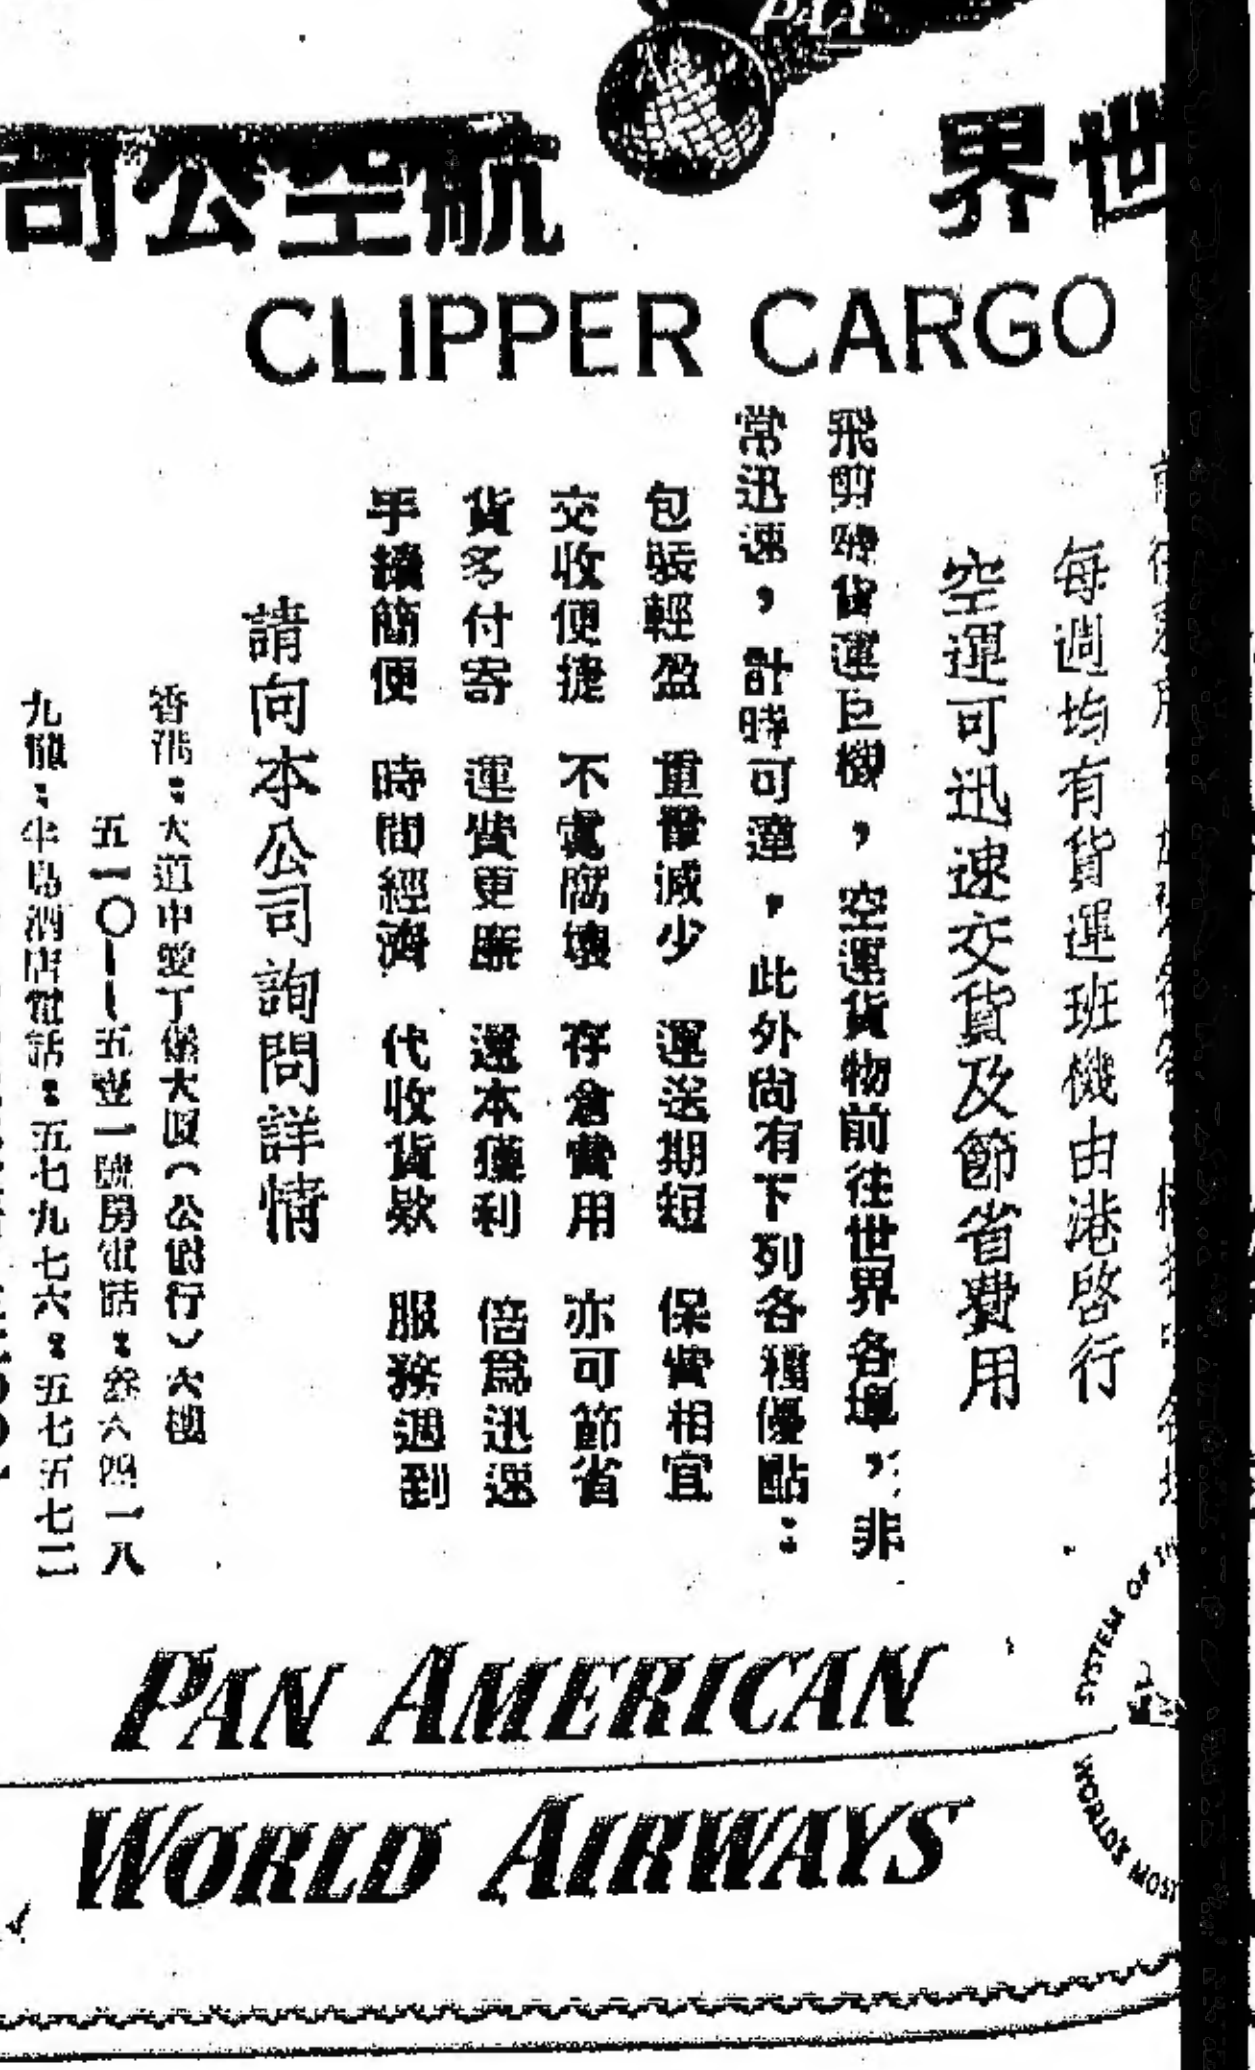 PAA
世界航空公司
CLIPPER CARGO
每週均有貨運班機由港啓行
空運可迅速交貨及節省費用
飛剪號貨運巨機，空運貨物前往世界各埠，非
常迅速，計時可達，此外尚有下列各種優點：
包裝輕盈 重量減少 運送期短 保費相宜
交收便捷 不虞腐壞 存倉費用 亦可節省
貨多付寄 運費更廉 還本獲利 倍爲迅速
手續簡便 時間經濟 代收貨欵 服務週到
請向本公司詢問詳情
香港：大道中愛丁堡大廈（公爵行）六樓
五一〇——五壹一號房電話：叁六四一八
九龍：半島酒店電話：五七九七六：五七五七二
PAN AMERICAN
WORLD AIRWAYS
SYSTEM OF
WORLD'S MOST